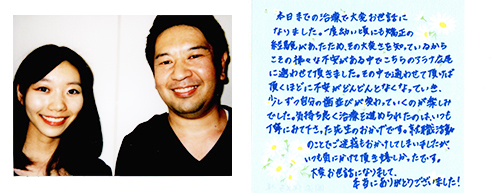 本日までの治療で大変お世話に
なりました。一度幼い頃にも矯正の
経験があったため、その大変さを知っているから
こその様々な不安がある中でこちらの
に通わせて頂きました。その中で通わせて頂けば
頂くほどに不安がどんどんとなくなっていき、
少しずつ自分の歯並びが変わっていくのが楽しみ
でした。気持ち良く治療を進められたのはいつも
丁寧におて下さった先生のおかげです。転職活動
のことでご迷惑もおかけしてしまいましたが、
いつも気にかけて頂き嬉しかったです。
大変お世話になりまして、
本当にありがとうございました!